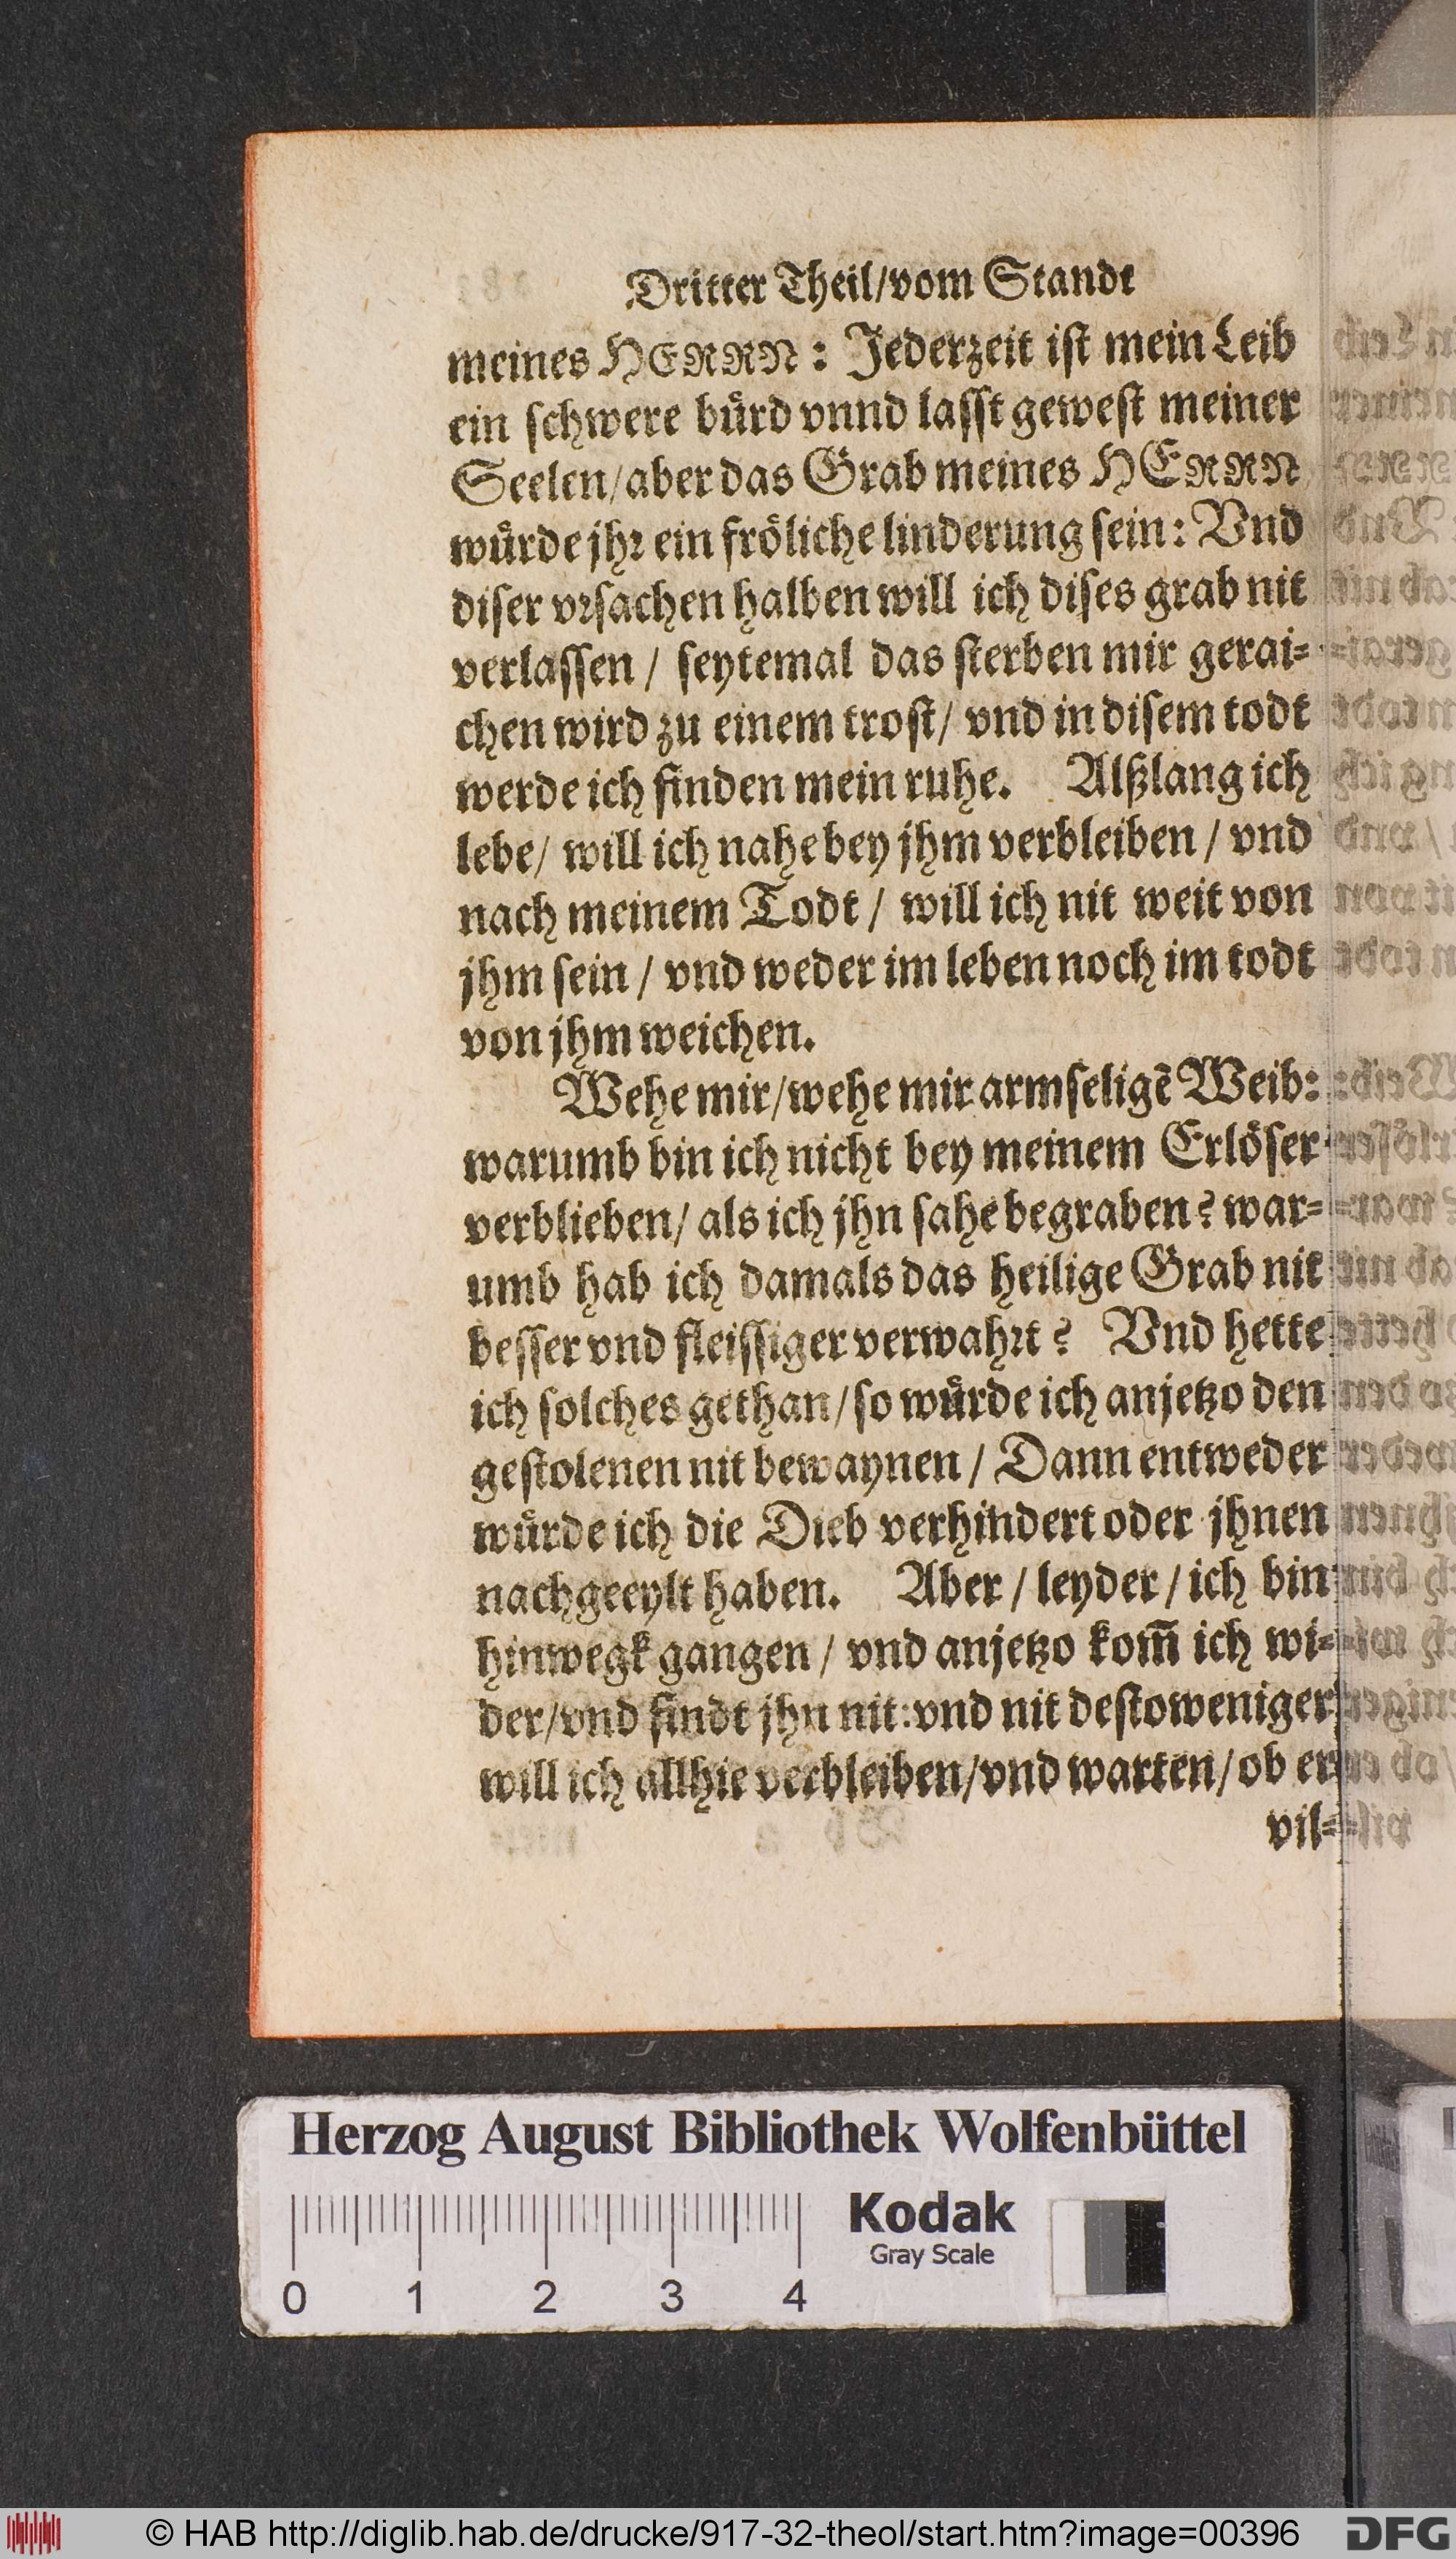 Dritter Theil/vom Standt
meines HERRN: Jederzeit ist mein Leib
ein schwere bürd vnnd lasst gewest meiner
Seelen/aber das Grab meines HERRN
würde jhr ein fröliche linderung sein: Vnd
diser vrsachen halben will ich dises grab nit
verlassen / seytemal das sterben mir gerai=
chen wird zu einem trost/ vnd in disem todt
werde ich finden mein ruhe. Alßlang ich
lebe/ will ich nahe bey jhm verbleiben / vnd
nach meinem Todt / will ich nit weit von
jhm sein / vnd weder im leben noch im todt
von jhm weichen.
Wehe mir/wehe mir armseligē Weib:
warumb bin ich nicht bey meinem Erlöser
verblieben/ als ich jhn sahe begraben? war=
umb hab ich damals das heilige Grab nit
besser vnd fleissiger verwahrt? Vnd hette
ich solches gethan/so würde ich anjetzo den
gestolenen nit bewaynen / Dann entweder
würde ich die Dieb verhindert oder jhnen
nachgeeylt haben. Aber / leyder / ich bin
hinwegk gangen / vnd anjetzo kom̄ ich wi=
der/vnd findt jhn nit: vnd nit destoweniger
will ich allhie verbleiben/vnd warten/ob er
vil=
Herzog August Bibliothek Wolfenbüttel
Kodak
Gray Scale
0 1 2 3 4
© HAB http://diglib.hab.de/drucke/917-32-theol/start.htm?image=00396
DFG